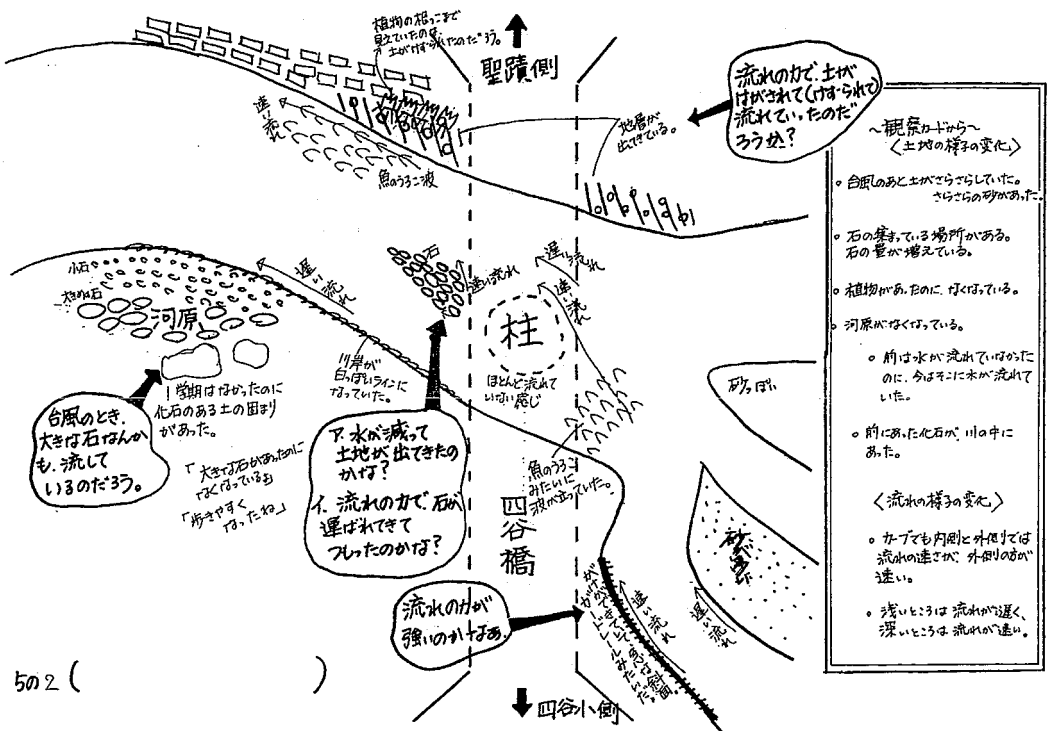 植物の根っこまで
見えていたので、
土がけずられたのだろう。
聖蹟側
流れの力で、土が
はがされて(けずられて)
流れていったのだ
ろうか?
地層が
出てきている。
速い流れ
魚のうろこ波
小石
大きめ石
河原
遅い流れ
石
速い流れ
遅い流れ
速い流れ
柱
ほとんど流れて
いない感じ
川岸が
白っぽいラインに
なっていた。
1学期はなかったのに
化石のある土の固まり
があった。
台風のとき、
大きな石なんか
も、流して
いるのだろう。
「大きな石があったのに
なくなっているね」
「歩きやすく
なったね」
ア. 水が減って
土地が出てきたの
かな?
イ. 流れの力で、石が
運ばれてきて
つもったのかな?
魚のうろこ
みたいに
波が立っていた。
四谷橋
流れの力が
強いのかなあ。
がけができていて、急な斜面。
ガードレールみたいだ。
速い流れ
遅い流れ
砂っぽい
四谷小側
5の2( )
～観察カードから～
〈土地の様子の変化〉
○ 台風のあと土がさらさらしていた。
さらさらの砂があった。
○ 石の集まっている場所がある。
石の量が増えている。
○ 植物があったのに、なくなっている。
○ 河原がなくなっている。
○ 前は水が流れていなかった
のに、今はそこに水が流れて
いた。
○ 前にあった化石が、川の中に
あった。
〈流れの様子の変化〉
○ カーブでも内側と外側では
流れの速さが、外側の方が
速い。
○ 浅いところは流れが遅く、
深いところは流れが速い。